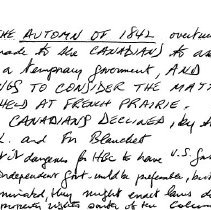 THE AUTOMN OF 1842 overtu
made to the CANADIANS to as
a temporary government, AND
NGS TO CONSIDER THE MATT
HELD AT FRENCH PRAIRIE.
CANADIANS DECLINED, by the
L. and Fr Blanchet
dangerous for HBC to have U.S. gov
independent govt. would be preferable, but
nominated, they might enact laws de
rights south of the Colum